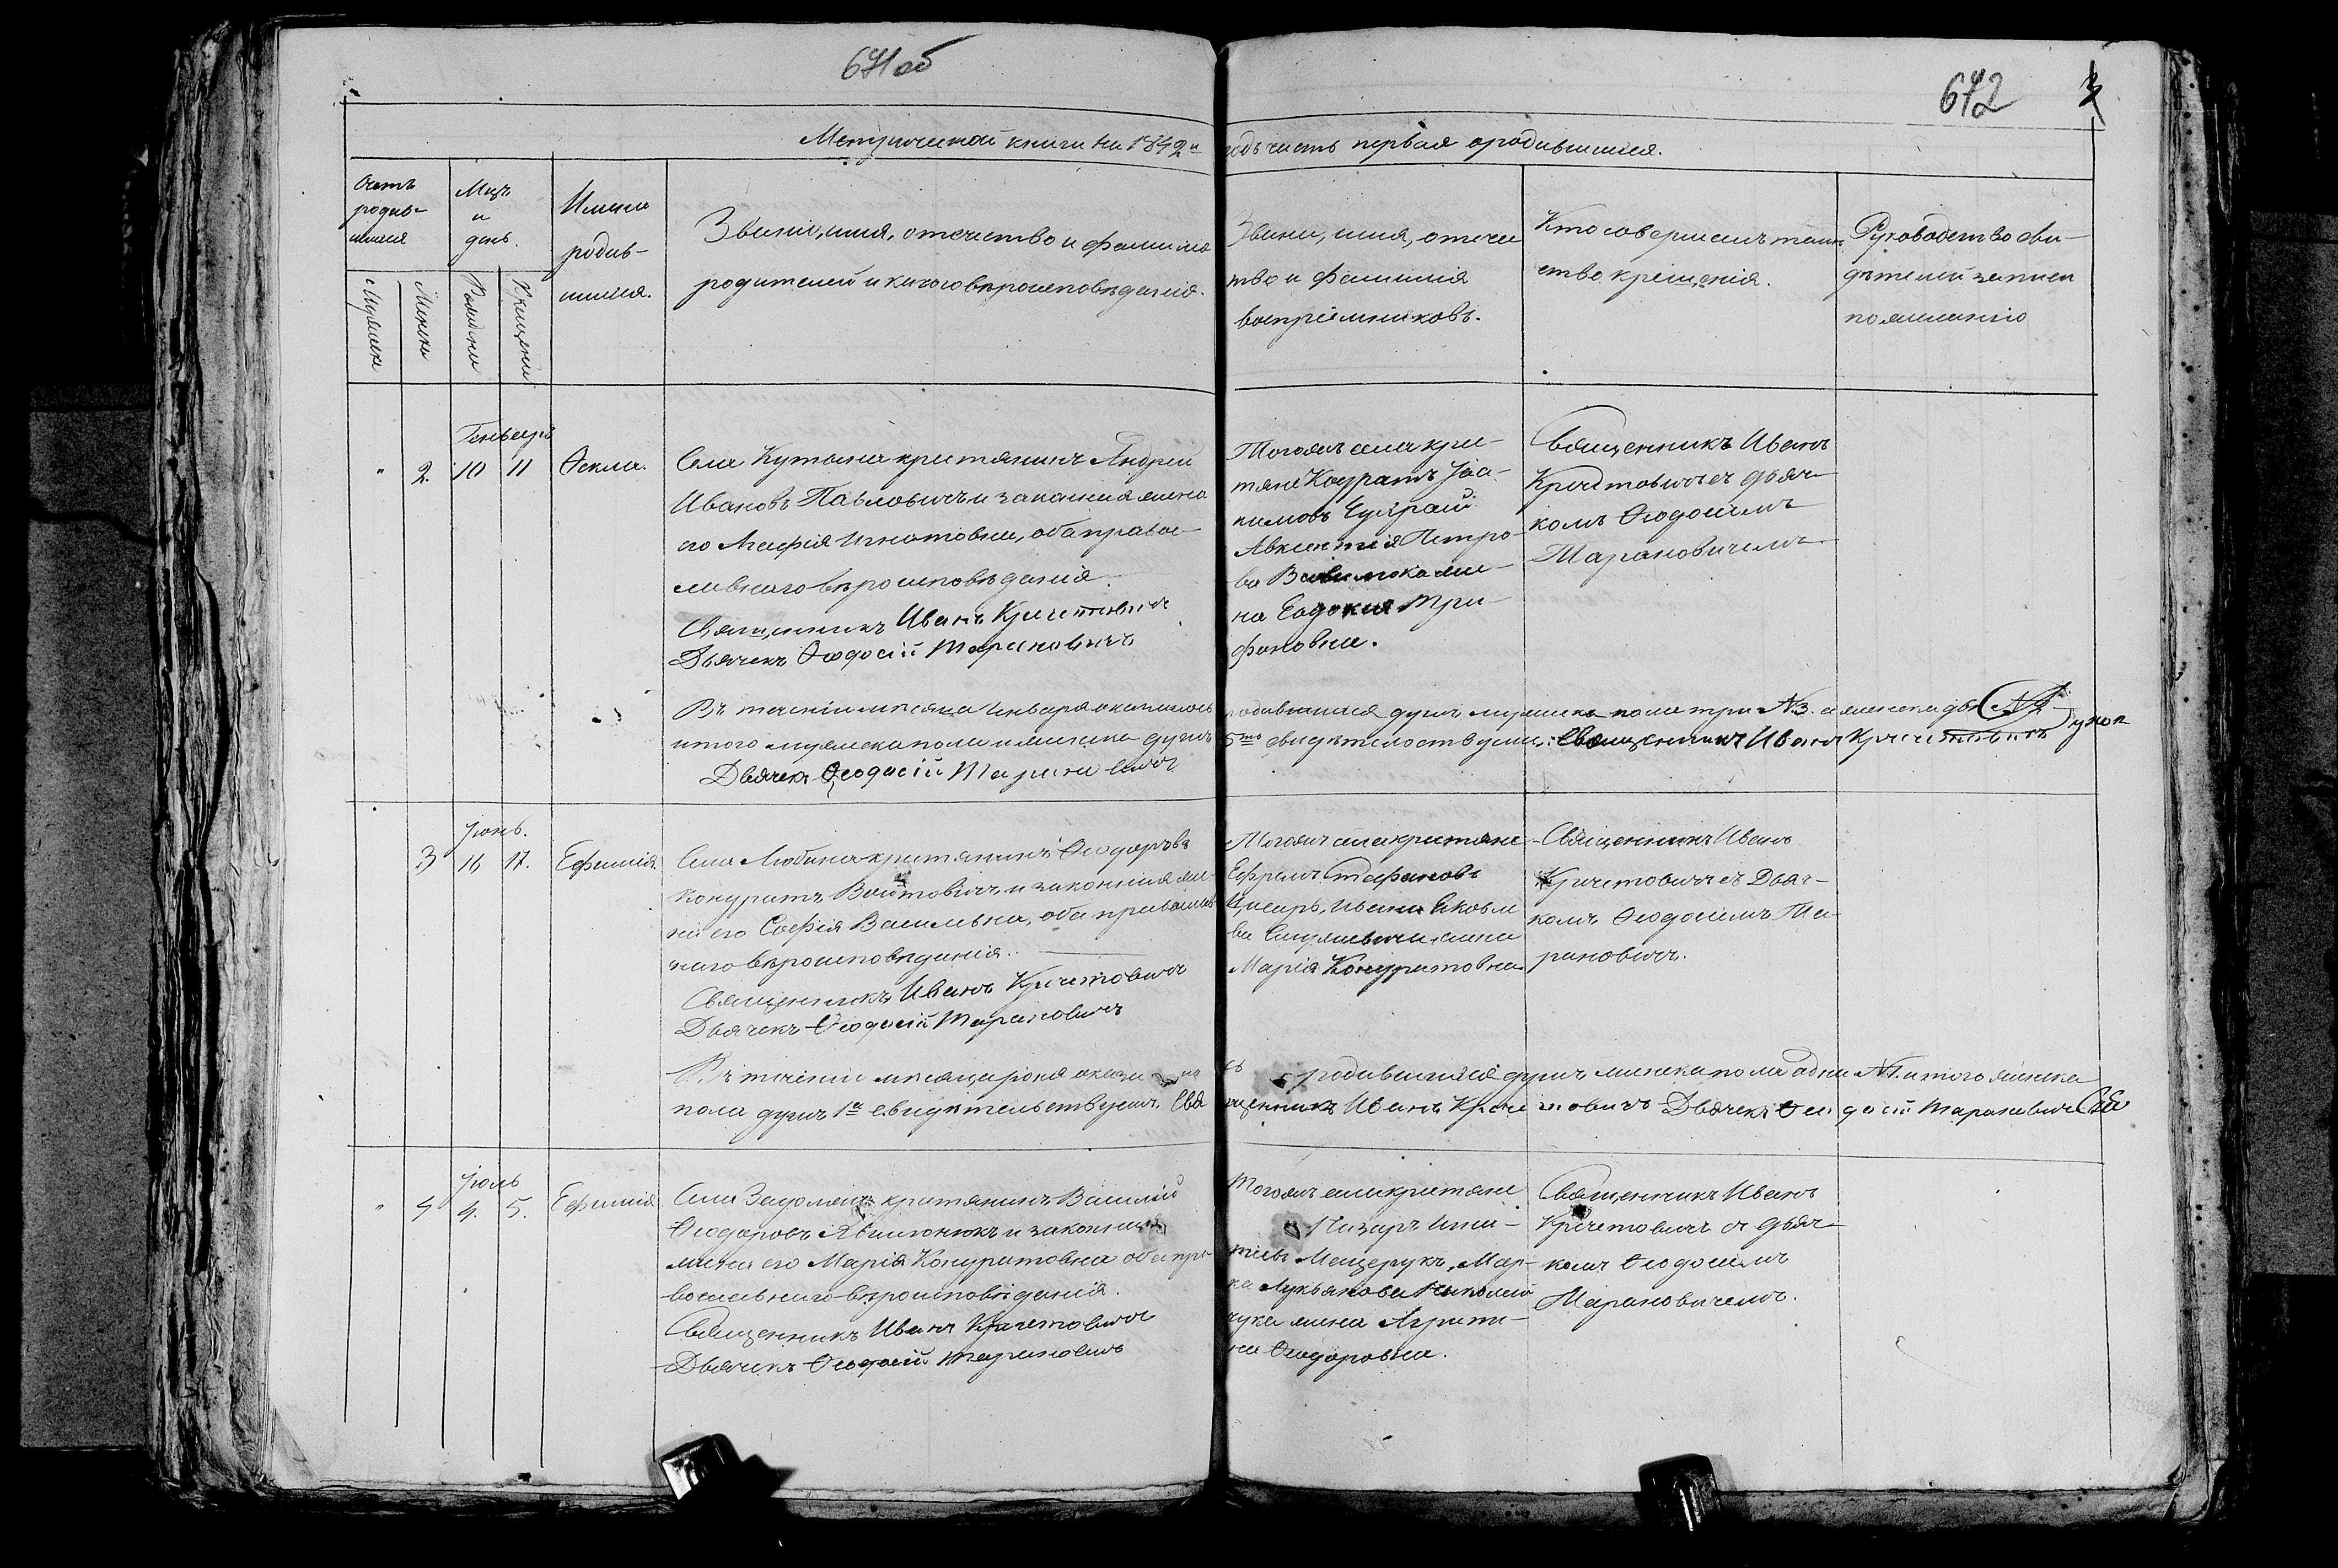 671об
672
3
Метрической книги на 1842й годъ часть первая о родившихся.
Счетъ родив-
шихся
Мужеска
Женска
Мцъ
и
день.
Рождения
Крещения
Имена
родив-
шихся.
Званіе, имя, отечество и фамилия
родителей и какого вѣроисповѣдания.
Званіе, имя, отече
ство и фамилия
восприемниковъ.
Кто совершалъ таин
ство крещенія.
Рукоприкладство сви-
дѣтелей записи
по желанію
Генварь
" 2. 10 11 Ѳекла.
Села Кутына крестянинъ Андрей
Ивановъ Павловичъ и законная жена
его Агафія Игнатовна, оба право-
славного вѣроисповѣданія.
Священникъ Иванъ Кричетовичъ
Дьячекъ Ѳеодосій Тарановичъ
Тогожъ села кре-
стяне Кодратъ Іоа-
кимовъ
Авксентія Петро-
ва жи-
на Евдокия Три-
фоновна.
Священникъ Иванъ
Кричетовичъ съ дьяч-
комъ Ѳеодосіемъ
Тарановичемъ.
Въ теченіи мѣсяца Генваря оказалось родившихся душъ мужеска пола три №3. а женска двѣ №2
итого мужеска пола и женска душъ 5ть свидѣтелствуемъ: Священникъ Иванъ Кричетовичъ
Дьячекъ Ѳеодосій Тарановичъ
Іюнь.
3 16 17. Ефимія.
Села Любына крестянинъ Ѳеодоровъ
Кондратъ Войтовичъ и законная же-
на его Софія Василевна, оба православ
наго вѣроисповѣданія.
Священникъ Иванъ Кричетовичъ
Дьячекъ Ѳеодосій Тарановичъ
Тогожъ села крестяне
Ефремъ Стефановъ
Цисарь, Ивана Яковле
ва жена
Марія Кондратовна
Священникъ Иванъ
Кричетовичъ съ Дьяч-
комъ Ѳеодосіемъ Та-
рановичъ.
Въ теченіи мѣсяца Іюня родившихся душъ женска пола одна №1. итого женска
пола душъ 1а свидѣтельствуемъ. Священникъ Иванъ Кричетовичъ Дьячекъ Ѳеодосій Тарановичъ
Іюль
" 4 4. 5. Ефимия
Села крестянинъ Василій
Ѳеодоровъ и законная
жена его Марія Кондратовна оба пра-
вославнаго вѣроисповѣданія.
Священникъ Иванъ Кричетовичъ
Дьячекъ Ѳеодосій Тарановичъ
Тогожъ села крестяне
Назаръ Игна-
тіевъ Мещерукъ, Мар-
ка Лукьянова Николай
чука жена Агрипи-
на Ѳеодоровна.
Священникъ Иванъ
Кричетовичъ съ дьяч-
комъ Ѳеодосіемъ
Тарановичемъ.